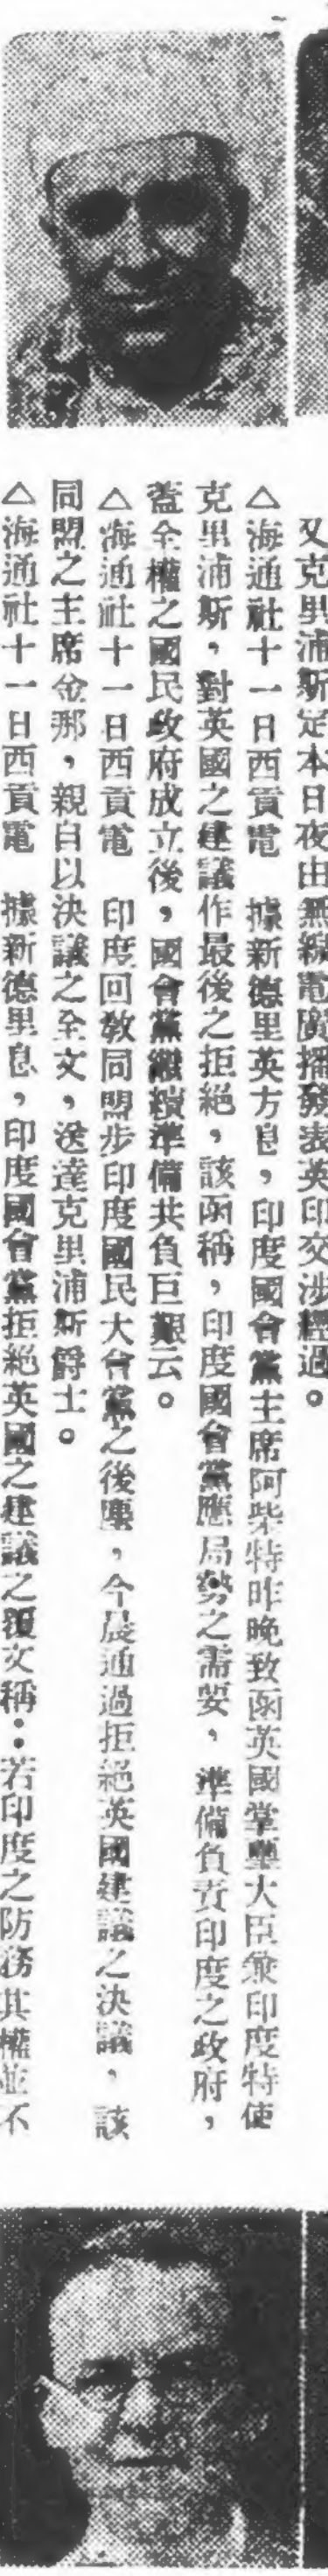 又克里浦斯定本日夜由無線電廣播發表英印交涉經過。
△海通社十一日西貢電　據新德里英方息，印度國會黨主席阿柴特昨晚致函英國掌璽大臣兼印度特使
克里浦斯，對英國之建議作最後之拒絕，該函稱，印度國會黨應局勢之需要，準備負責印度之政府，
蓋全權之國民政府成立後，國會黨繼續準備共負巨艱云。
△海通社十一日西貢電　印度回教同盟步印度國民大會黨之後塵，今晨通過拒絕英國建議之決議，該
同盟之主席金那，親自以決議之全文，送達克里浦斯爵士。
△海通社十一日西貢電　據新德里息，印度國會黨拒絕英國之建議之覆文稱：若印度之防務其權並不